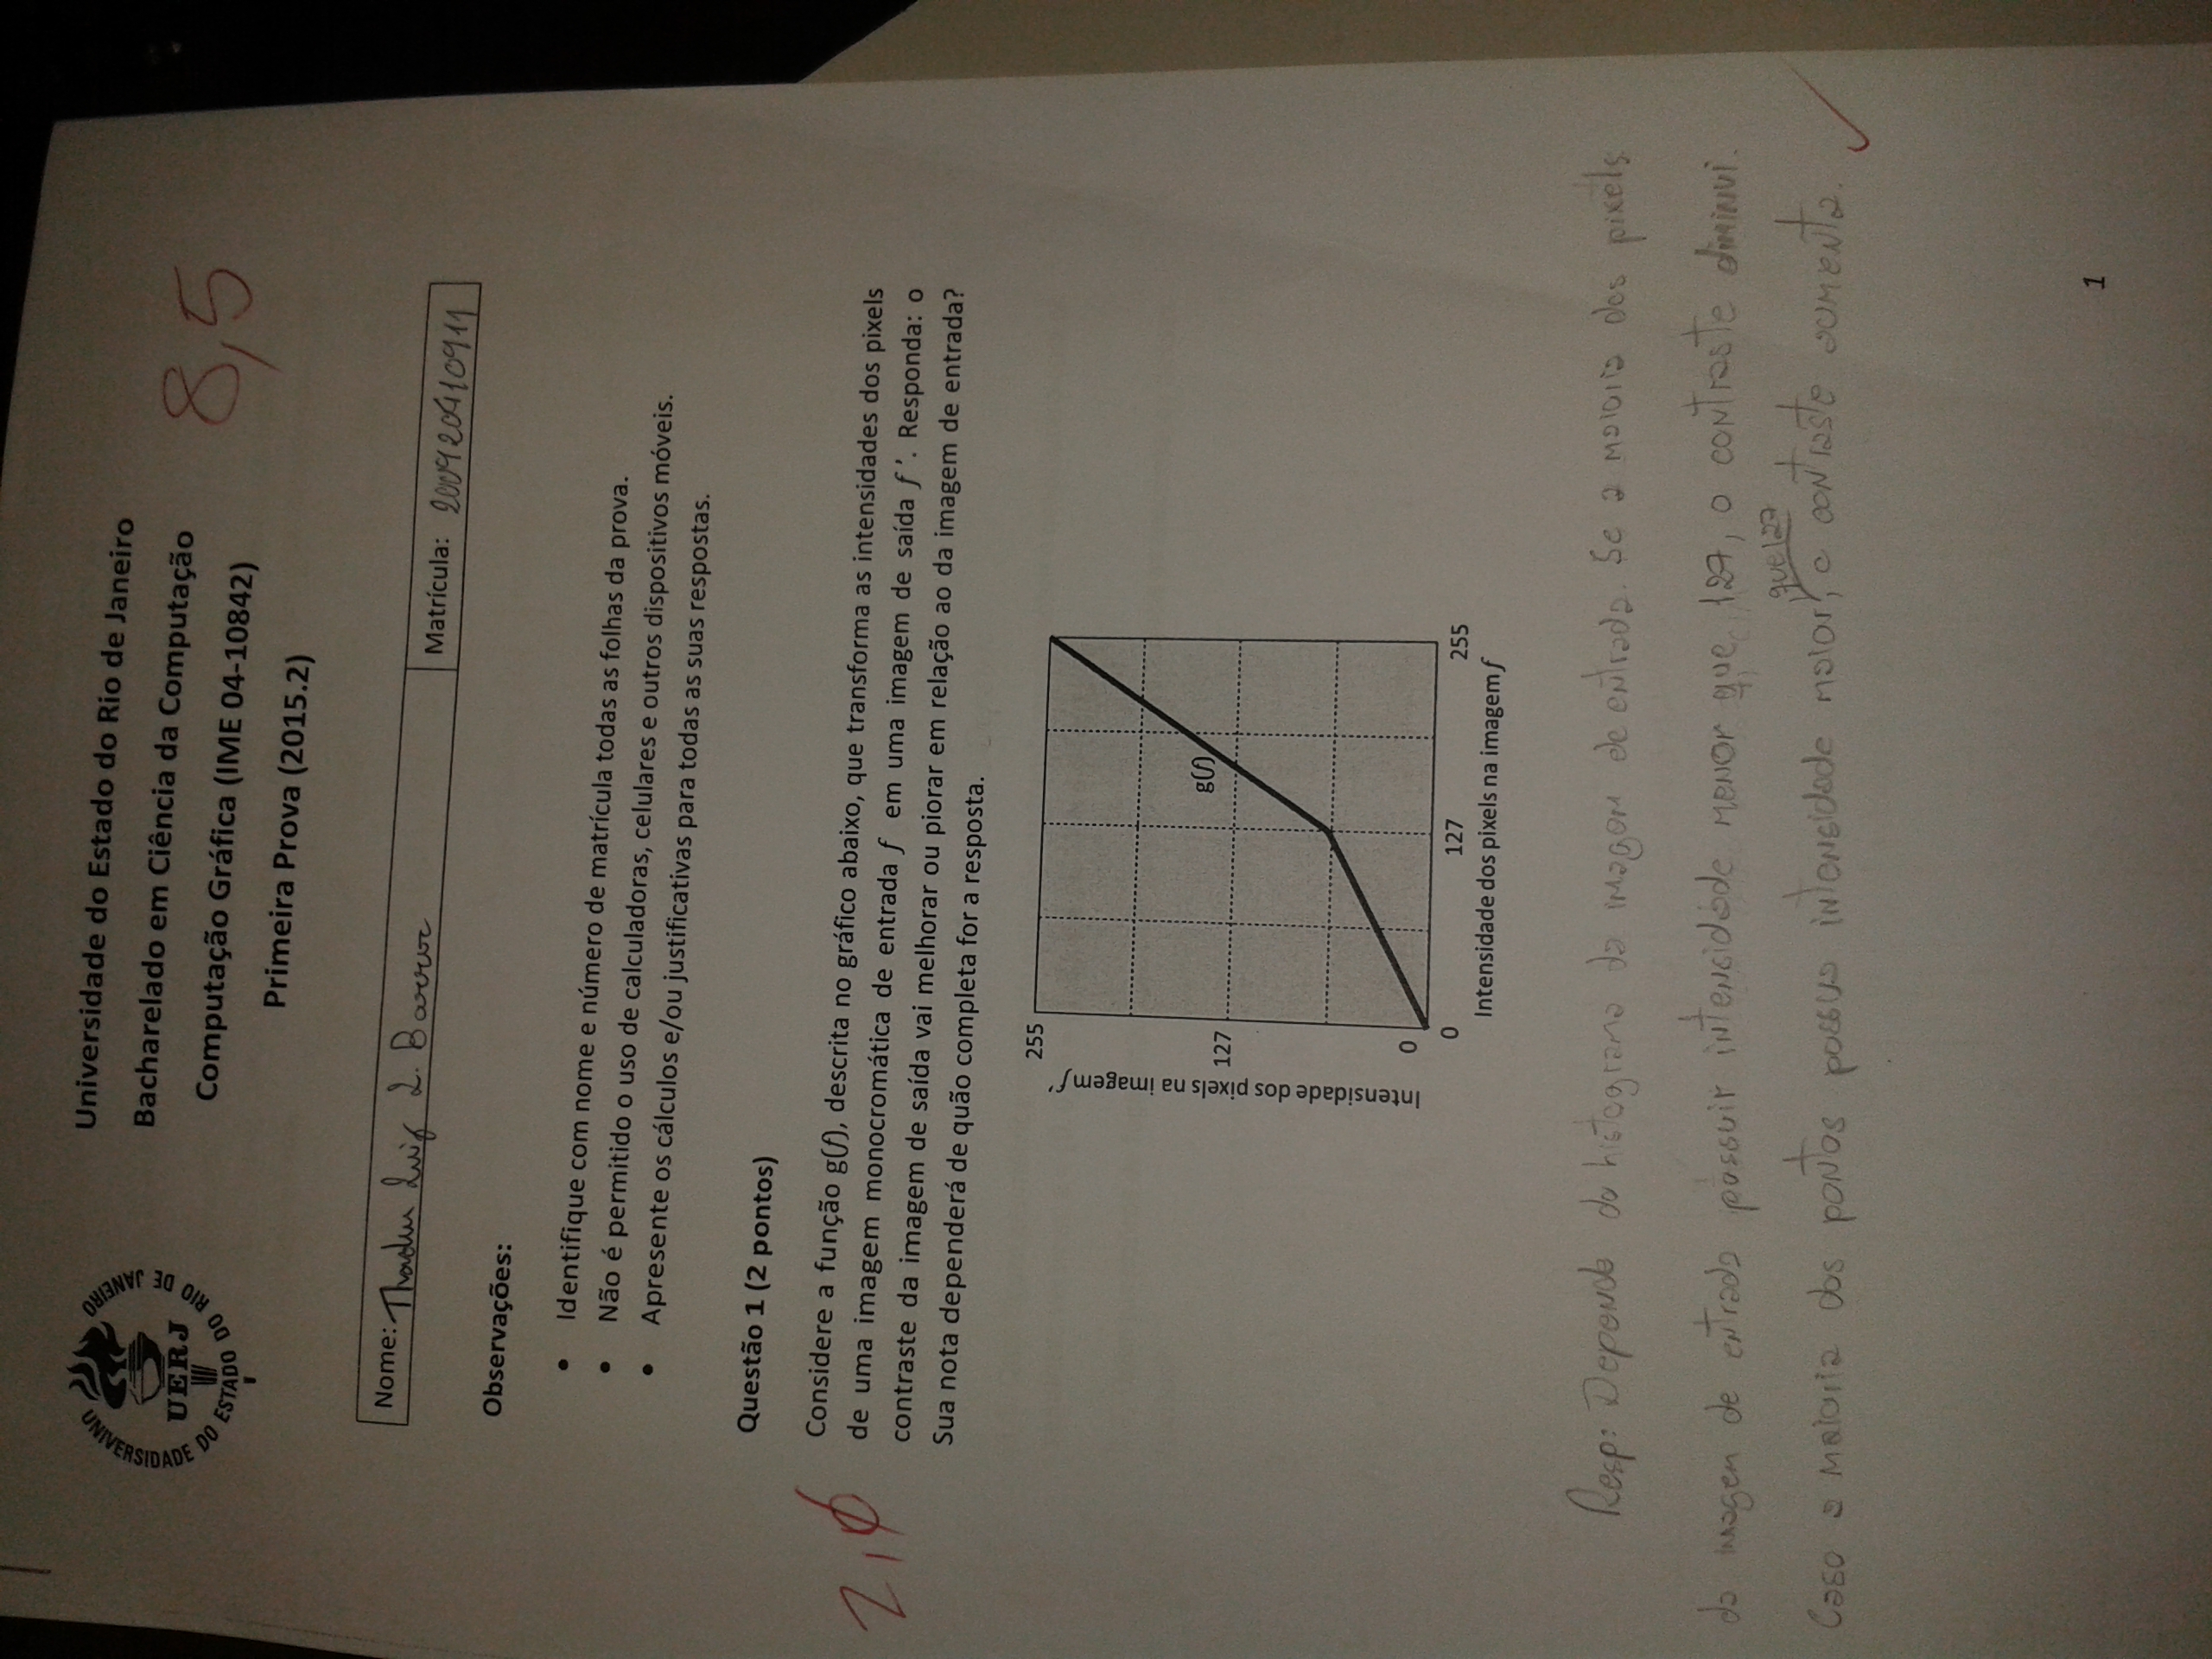 UNIVERSIDADE DO ESTADO DO RIO DE JANEIRO
UERJ
Universidade do Estado do Rio de Janeiro
Bacharelado em Ciência da Computação
Computação Gráfica (IME 04-10842)
Primeira Prova (2015.2)
8,5
Nome: Luiz L.
Matrícula: 200920410911
Observações:
• Identifique com nome e número de matrícula todas as folhas da prova.
• Não é permitido o uso de calculadoras, celulares e outros dispositivos móveis.
• Apresente os cálculos e/ou justificativas para todas as suas respostas.
Questão 1 (2 pontos)
2,0
Considere a função g(f), descrita no gráfico abaixo, que transforma as intensidades dos pixels
de uma imagem monocromática de entrada f em uma imagem de saída f'. Responda: o
contraste da imagem de saída vai melhorar ou piorar em relação ao da imagem de entrada?
Sua nota dependerá de quão completa for a resposta.
255
127
0
Intensidade dos pixels na imagem f'
g(f)
0 127 255
Intensidade dos pixels na imagem f
Resp: Depende do histograma da imagem de entrada. Se a maioria dos pixels
da imagem de entrada possuir intensidade menor que 127, o contraste diminui.
Caso a maioria dos pontos possua intensidade maior que 127, o contraste aumenta.
1